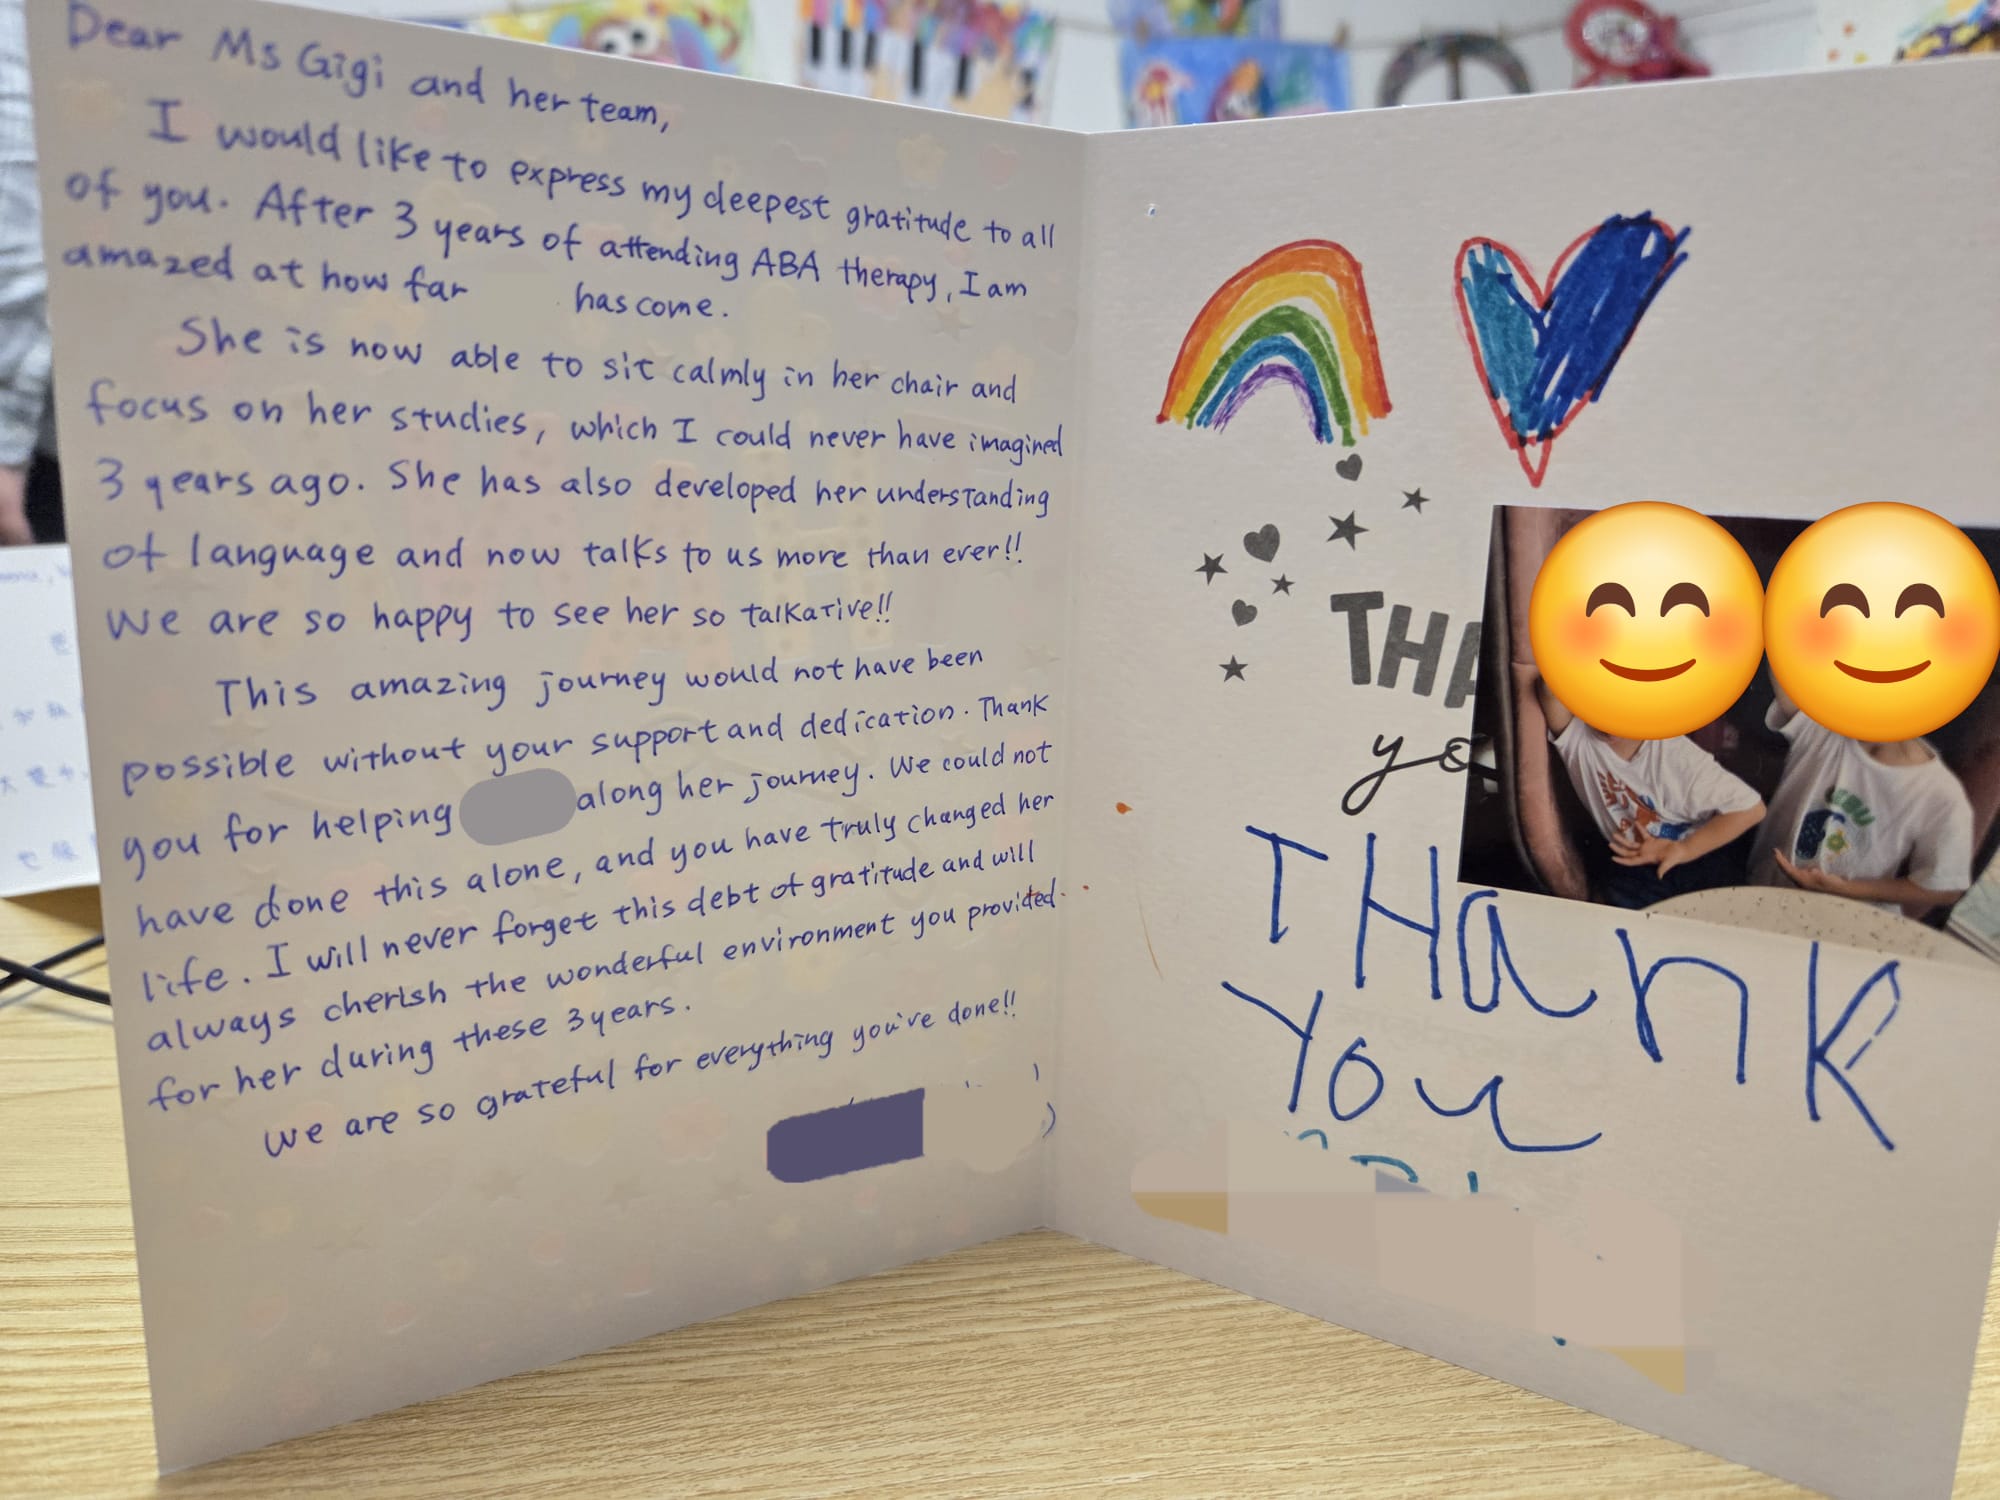 Dear Ms Gigi and her team,
I would like to express my deepest gratitude to all
of you. After 3 years of attending ABA therapy, I am
amazed at how far has come.
She is now able to sit calmly in her chair and
focus on her studies, which I could never have imagined
3 years ago. She has also developed her understanding
of language and now talks to us more than ever!!
We are so happy to see her so talkative!!
This amazing journey would not have been
possible without your support and dedication. Thank
you for helping along her journey. We could not
have done this alone, and you have truly changed her
life. I will never forget this debt of gratitude and will
always cherish the wonderful environment you provided
for her during these 3 years.
We are so grateful for everything you've done!!
THA
yo
THanK
You